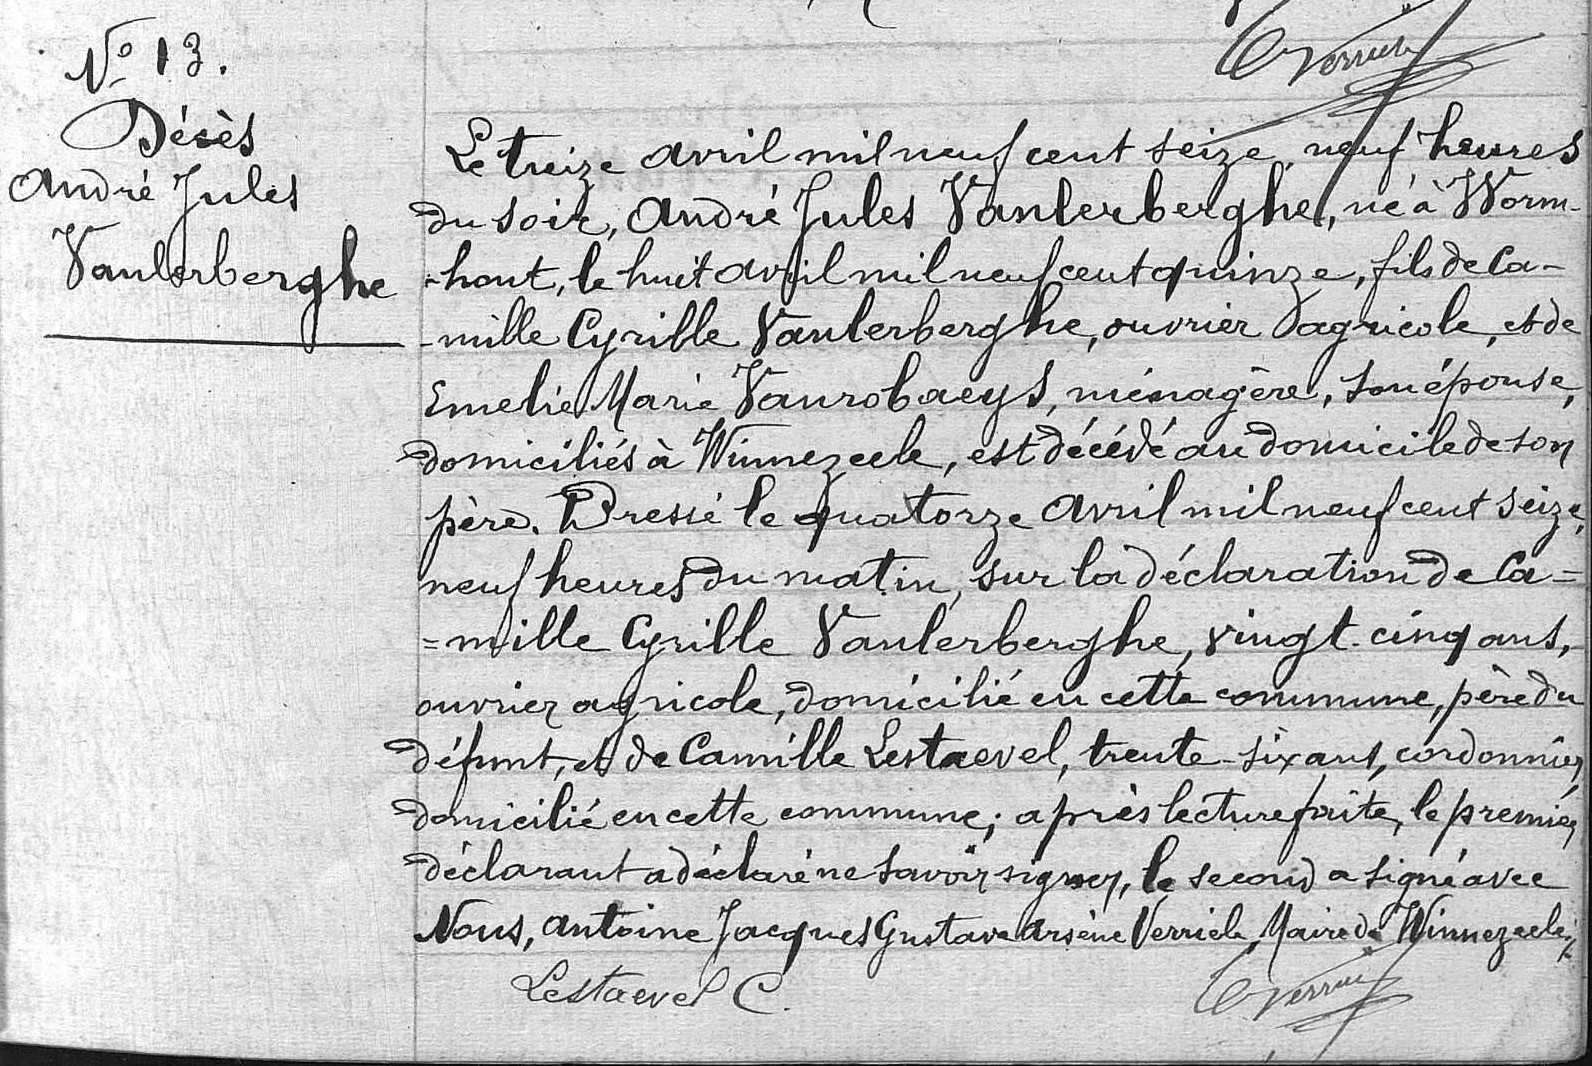 Verriele
N° 13.
Décès
André Jules
Vanlerberghe
Le treize avril mil neuf cent seize, neuf heures
du soir, André Jules Vanlerberghe, né à Worm-
-hout, le huit avril mil neuf cent quinze, fils de Ca-
-mille Cyrille Vanlerberghe, ouvrier agricole, et de
Emelie Marie Vanrobaeys, ménagère, son épouse,
domiciliés à Winnezeele, est décédé au domicile de son
père. Dressé le quatorze avril mil neuf cent seize,
neuf heures du matin, sur la déclaration de Ca=
=mille Cyrille Vanlerberghe, vingt-cinq ans,
ouvrier agricole, domicilié en cette commune, père du
défunt, et de Camille Lestaevel, trente-six ans, cordonnier,
domicilié en cette commune; après lecture faite, le premier
déclarant a déclaré ne savoir signer, le second a signé avec
Nous, Antoine Jacques Gustave Arsène Verriele, Maire de Winnezeele.
Lestaevel C.
Verriele